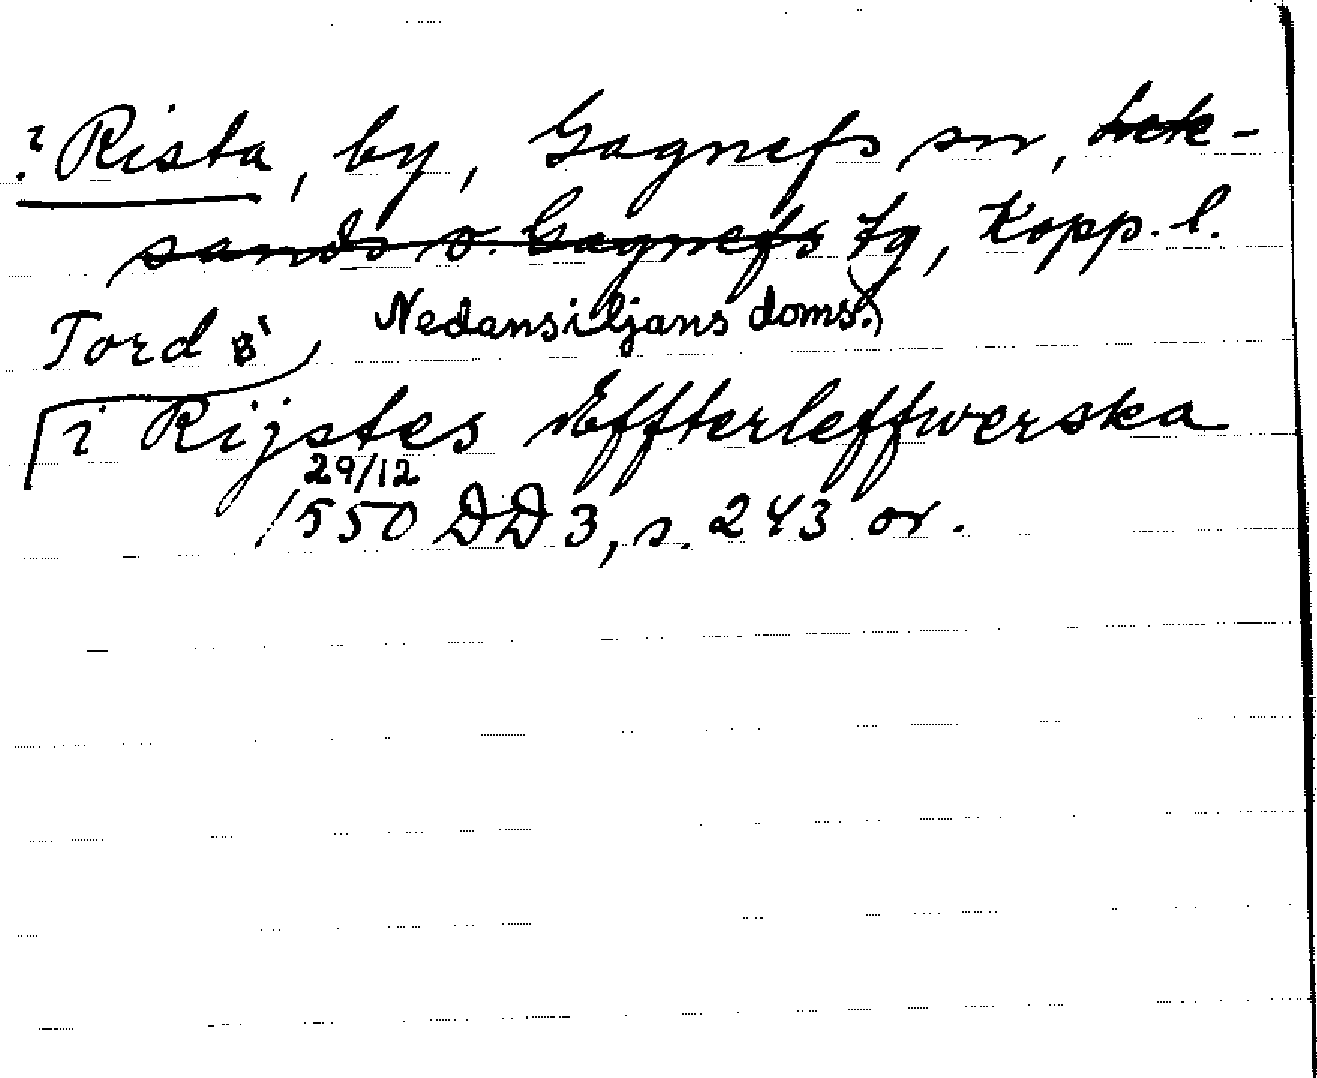 ? Rista, by, Gagnefs sn, Lek-
sands o. Gagnefs tg, Kopp. l.
Nedansiljans doms.
Tord
i Rijstes Effterleffwerska
29/12
1550 DD 3, s. 243 or.